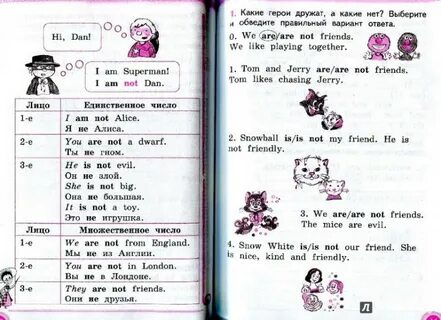 Hi, Dan!
I am Superman!
I am not Dan.
Лицо Единственное число
1-е I am not Alice.
Я не Алиса.
2-е You are not a dwarf.
Ты не гном.
3-е He is not evil.
Он не злой.
She is not big.
Она не большая.
It is not a toy.
Это не игрушка.
Лицо Множественное число
1-е We are not from England.
Мы не из Англии.
2-е You are not in London.
Вы не в Лондоне.
3-е They are not friends.
Они не друзья.
1. Какие герои дружат, а какие нет? Выбери
и обведите правильный вариант ответа.
0. We are/are not friends.
We like playing together.
1. Tom and Jerry are/are not friends.
Tom likes chasing Jerry.
2. Snowball is/is not my friend. He is
not friendly.
3. We are/are not friends.
The mice are evil.
4. Snow White is/is not our friend. She
is nice, kind and friendly.
Л